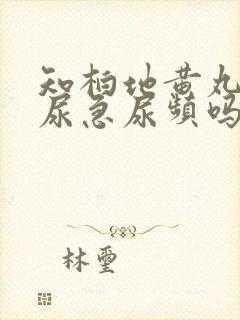 知柏地黄丸
尿急尿频吗
林玺